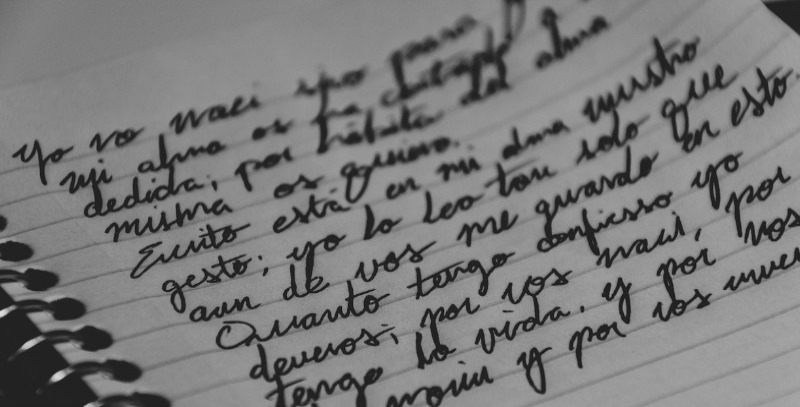 Yo no naci sino para
mi alma os ha cortado
dedida; por hábito del alma
misma os quiero.
Escrito está en mi alma vuestro
gesto; yo lo leo tan solo que
aun de vos me guardo en esto.
Quanto tengo confiesso yo
deveros; por vos naci, por
tengo la vida, y por vos
morir y por vos